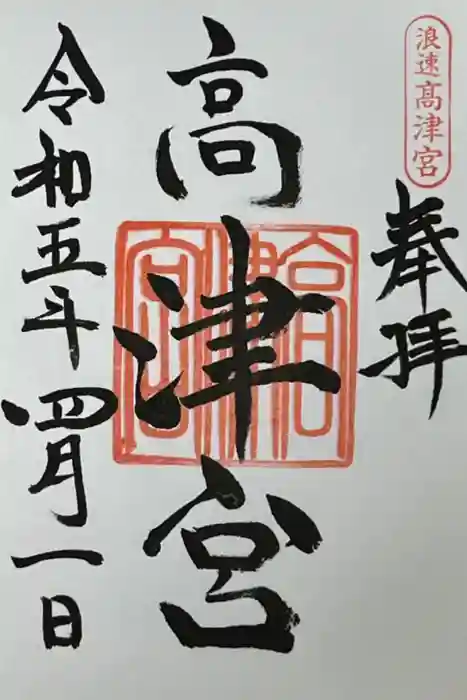 浪速高津宮
奉拝
高津宮
高津宮
令和五年四月一日